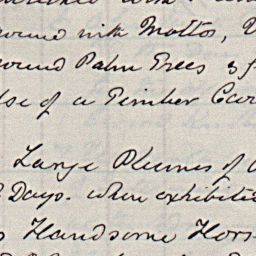 round with Mottos,
round Palm Trees &
of a Timber Car
Large Plumes of
Days. when exhibite
Handsome Hors